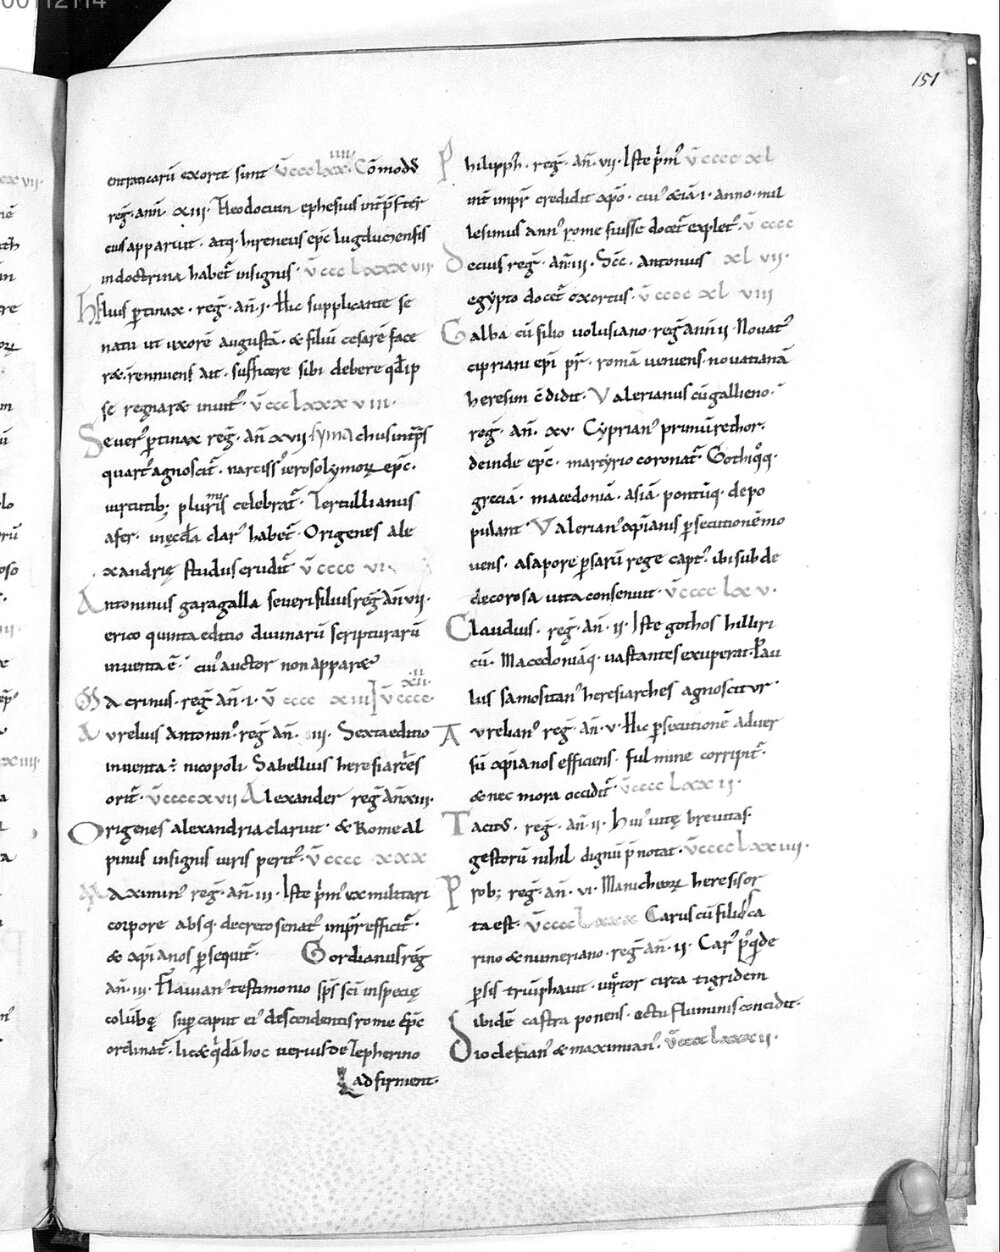 151
entraticarū exorte sunt v̄ccclxx. Cōmodꝰ
iiii
reg̅. ann̅. xiii. Theodocion ephesius int̅p̅s t̅er
cius apparuit. atq; hireneus ep̅c lugdunensis
in doctrina habet̅ insignis. v̄ccclxxxvii
hElius ptinax. reg̅. an̅. i. Hic supplicante se
natu ut uxorē augustā. & filiū cesarē face
r&. rennuens ait. sufficere sibi debere qd̅ ip
se regnar& inuit᾽. v̄ccclxxxviii.
Seuer᾽ ptinax reg̅. an̅ xvii. symachus int̅p̅s
quart᾽ agnoscit̅. narciss᾽ ierosolymoꝝ ep̅c.
uirtutib; plurimis celebrat̅. Tertullianus
afer. in ęccl̅a clar᾽ habet̅. Origenes ale
xandrię studiis erudit᾽ v̄cccc vi.
Antoninus garagalla seueri filius reg̅ an̅ vii.
erico quinta editio diuinarū scripturarū
inuenta ē. cui᾽ auctor non appar&
Macrinus. reg̅ an̅. i. v̄ cccc xiii v̄cccc.
xii.
Aurelius Antonin᾽. reg̅ an̅. iii. Sexta editio
inuenta ÷ nicopoli. Sabellius heresiarces
orit̅. v̄ccccxvii Alexander reg̅ an̅ xiii.
Origenes alexandria claruit. & Rome al
pinus insignis iuris perit᾽. v̄cccc xxx
Maximin᾽ reg̅ an̅. iii. Iste p̅m᾽ ex militari
corpore absq; decreto senat᾽ imp̅r efficit̅.
& xp̅ianos p̱sequit̅. Gordianus reg̅
an̅. iii. Flauian᾽ testimonio sp̅s sc̅i in specię
colūbę sup caput ei᾽ descendentis rome ep̅c
ordinat̅. lic& qd̅ā hoc uerius de Zepherino
adfirment.
Philipp᾽. reg̅. an̅. vii. Iste p̅m᾽ v̄cccc xl
int̅ imp̅r credidit xp̅o. cui᾽ &iā i. anno mil
lesimus ann᾽ rome fuisse docet̅ explet᾽. v̄ cccc
Decius reg̅. an̅. ii. Sc̅s. antonius xl vii.
egypto docet̅ exortus. v̄cccc xl viii
Galba cū filio uolusiano. reg̅ ann̅ ii. Nouat᾽
cipriani ep̅i pr̅. romā ueniens. nouatianā
heresim c̅didit. Valerianus cū gallieno.
reg̅. an̅. xv. Cyprian᾽ primū rethor.
deinde ep̅c. martyrio coronat̅. Gothi q̊q.
greciā. macedoniā. asiā. pontūq. depo
pulant̅ Valerian᾽ xp̅ianis p̱secutionē mo
uens. a sapore p̱sarū rege capt᾽. ibi sub de
decorosa uita consenuit. v̄cccc lxv.
Claudius. reg̅. an̅. ii. Iste gothos hilliri
cū. Macedoniāq. uastantes exuperat. Pau
lus samositan᾽ heresiarches agnoscitur.
Aurelian᾽ reg̅. an̅. v. Hic p̱secutionē aduer
sū xp̅ianos efficiens. fulmine corripit̅.
& nec mora occidit̅. v̄cccc lxxii.
Tacitꝰ. reg̅. an̅. ii. Hui᾽ uitę breuitas.
gestorū nihil dignū p̅notat. v̄cccclxxiiii.
Prob; reg̅. an̅. vi. Manicheoꝝ heresis or
ta est. v̄cccclxxx Carus cū filiis ca
rino & numeriano. reg̅ an̅. ii. Car᾽ p᾽q de
p̱sis triūphauit. uictor circa tigridem
ibidē castra ponens. ictu fluminis concidit.
Dioclesian᾽ & maximian᾽. v̄cccclxxxii.